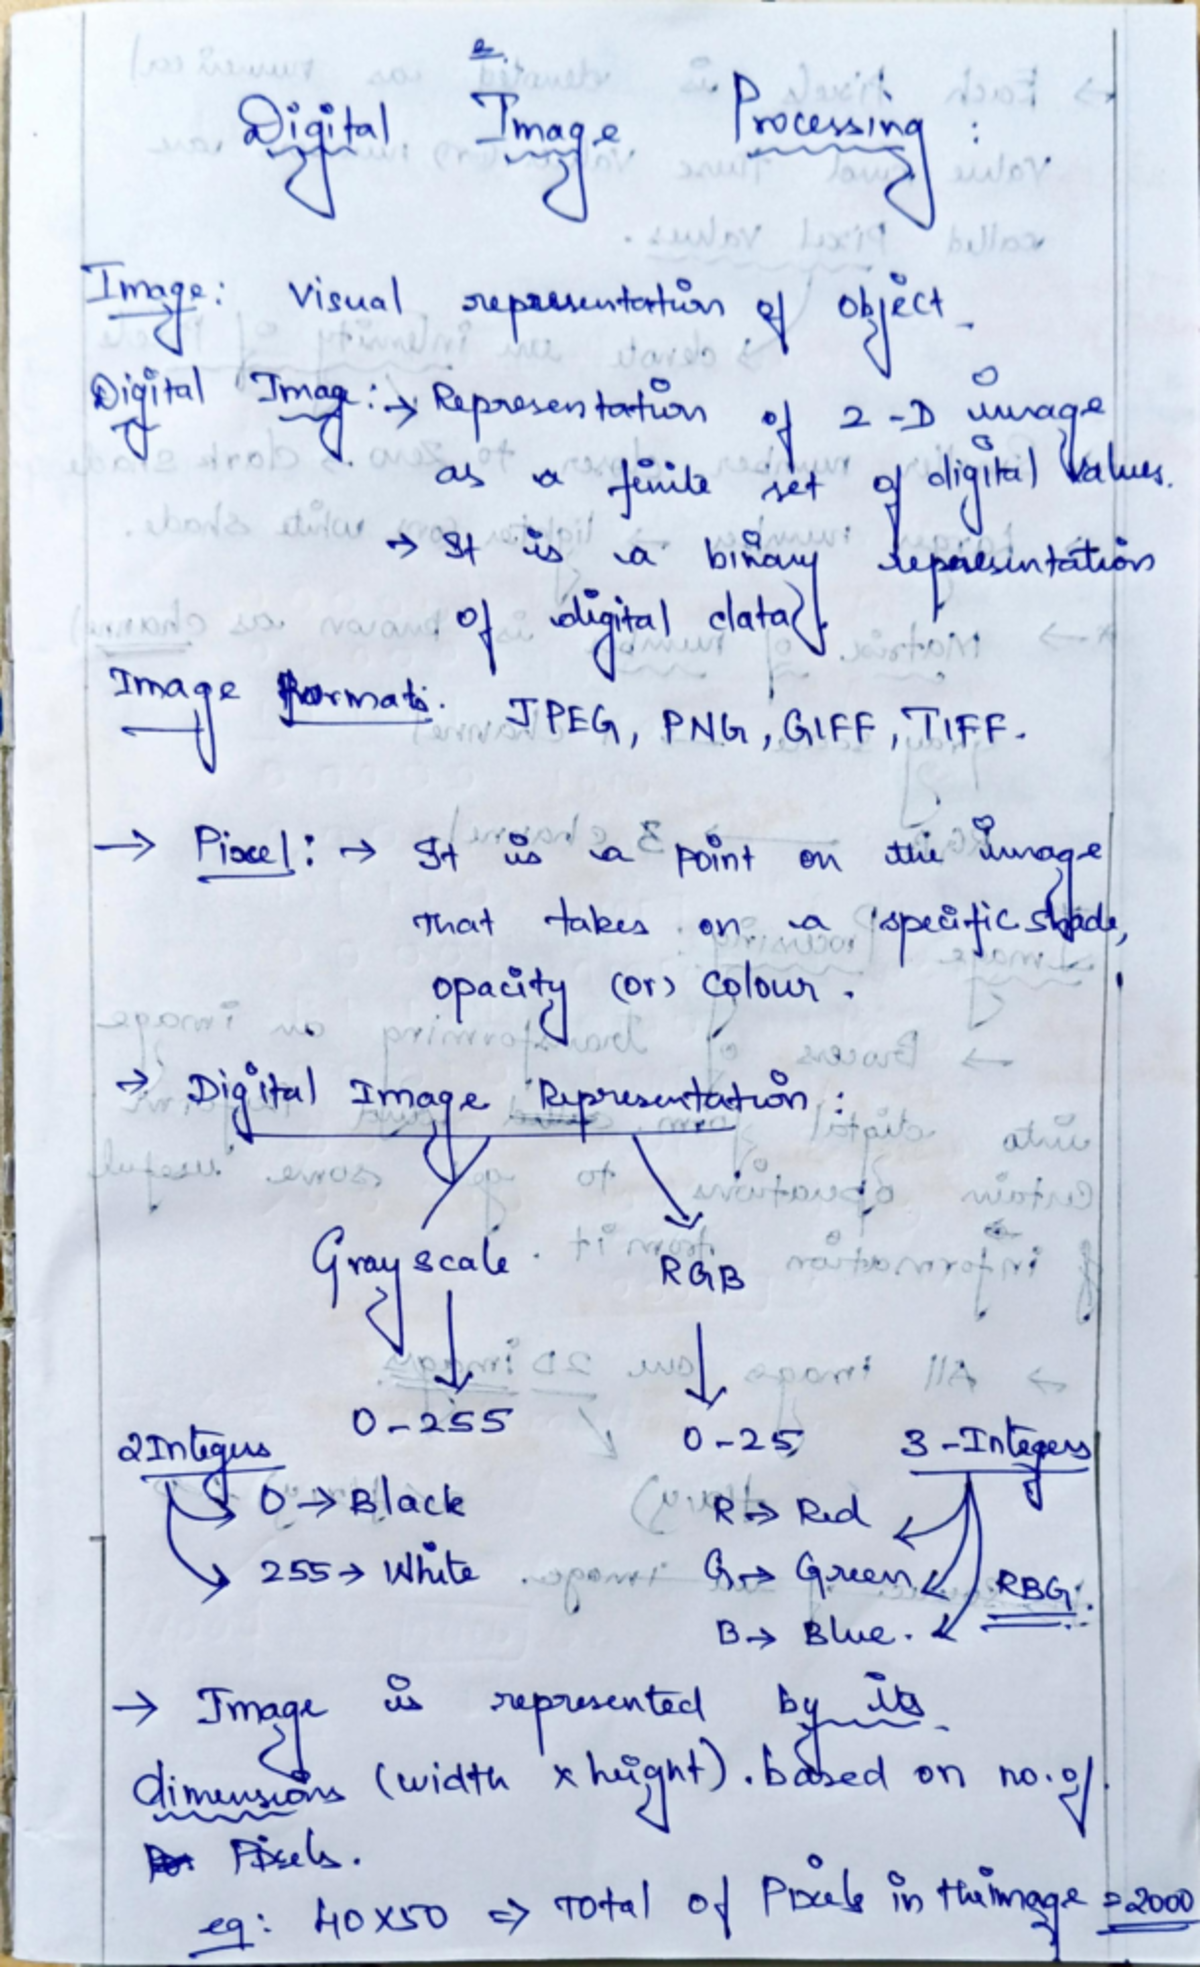 Digital Image Processing :
Image: Visual representation of object.
Digital Image: → Representation of 2-D image
as a finite set of digital values.
→ It is a binary representation
of digital data.
Image formats: JPEG, PNG, GIFF, TIFF.
→ Pixel: → It is a point on the image
that takes on a specific shade,
opacity (or) colour.
→ Digital Image Representation:
Grayscale. RGB
0-255 0-25
2 Integers 3-Integers
0 → Black R → Red
255 → White G → Green RBG:
B → Blue.
→ Image is represented by its
dimensions (width x height). based on no. of
Pixels.
eg: 40x50 => Total of Pixels in the image = 2000